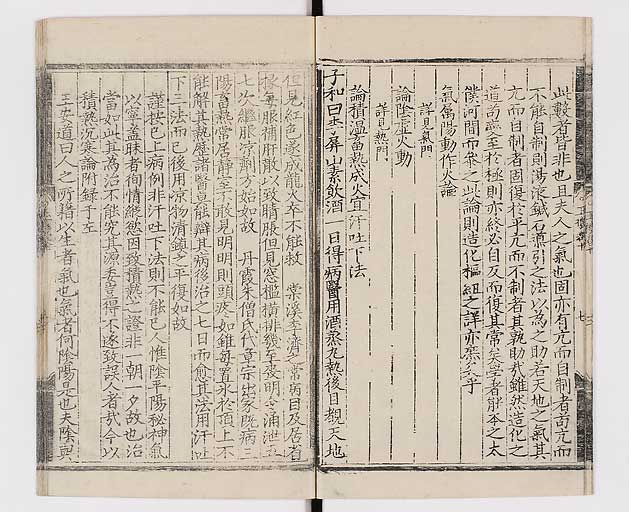 此數者皆非也且夫人之氣也固亦有亢而自制者苟亢而
不能自制則湯液鍼石導引之法以為之助若天地之氣其
亢而自制者固復於平亢而不制者其孰助哉雖然造化之
道苟變至於極則亦終必自反而復其常矣學者能本之太
僕河間而衆之此論則造化樞紐之詳亦庶幾乎
氣屬陽動作火論
詳見氣門
論陰虛火動
詳見熱門
論積溫畜熱成火宜汗吐下法
子和曰李屏山素飲酒一日得病醫用酒蒸九熱後目觀天地
但見紅色遂成龍火卒不能救 常溪李濟之常病目及居省
掾每服補肝散以致睛脹但見窓櫺橫排幾至喪明令涌泄五
七次繼服涼劑方始如故 丹霞朱僧氏代章宗出家旣病三
陽畜熱常居靜室不敢見明明則頭疼如錐每置氷於頂上不
能解其熱歷諸醫莫能辯其病後治之七日而愈其法用汗吐
下三法而已後用涼物淸鎭之平復如故
謹按已上病例非汗吐下法則不能已人惟陰平陽秘神氣
以寧蓋昧者徇情縱慾因致積熱之證非一朝一夕故也治
當如此其爲治不能究其源委豈得不遂致誤人者哉今以
積熱沉寒論附錄于左
王安道曰人之所藉以生者氣也氣者何陰陽是也夫陰與